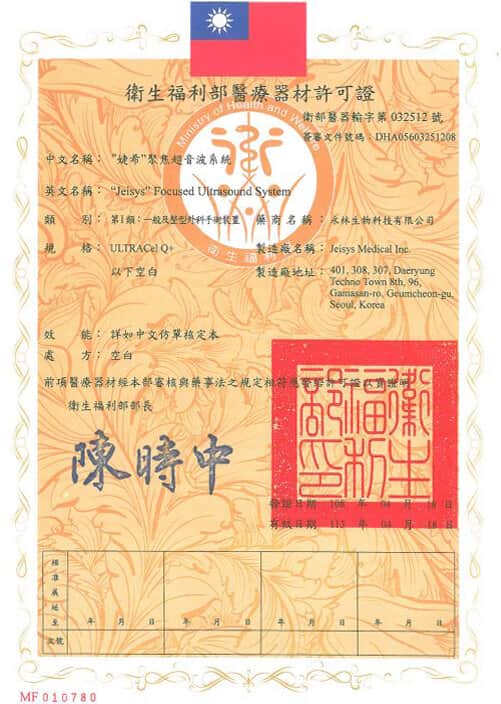 衛生福利部醫療器材許可證
衛部醫器輸字第 032512 號
簽審文件號碼：DHA05603251208
Ministry of Health and Welfare
衛生福利
中文名稱： “婕希”聚焦超音波系統
英文名稱： “Jeisys” Focused Ultrasound System
類 別： 第I類：一般及整型外科手術裝置 藥商名稱： 永林生物科技有限公司
規 格： ULTRACel Q+ 製造廠名稱： Jeisys Medical Inc.
以下空白 製造廠地址： 401, 308, 307, Daeryung
Techno Town 8th, 96,
Gamasan-ro, Geumcheon-gu,
Seoul, Korea
效 能： 詳如中文仿單核定本
處 方： 空白
前項醫療器材經本部審核與藥事法之規定相符應發給許可證以資證明
衛生福利部部長
陳時中
衛生福利部印
發證日期 108 年 04 月 18 日
有效日期 113 年 04 月 18 日
核准展延至 年 月 日 年 月 日 年 月 日 年 月 日
文號
MF010780